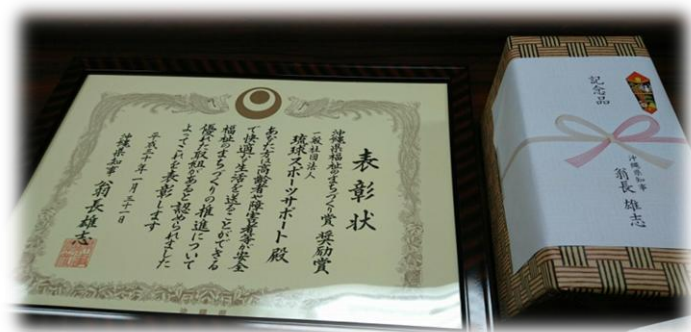 表彰状
沖縄県福祉のまちづくり賞 奨励賞
一般社団法人
琉球スポーツサポート殿
あなた方は高齢者や障害者等が安全
で快適な生活を送ることができる
福祉のまちづくりの推進について
優れた取組があると認められました
よってこれを表彰します
平成三十年一月三十一日
沖縄県知事 翁長雄志
記念品
沖縄県知事
翁長雄志